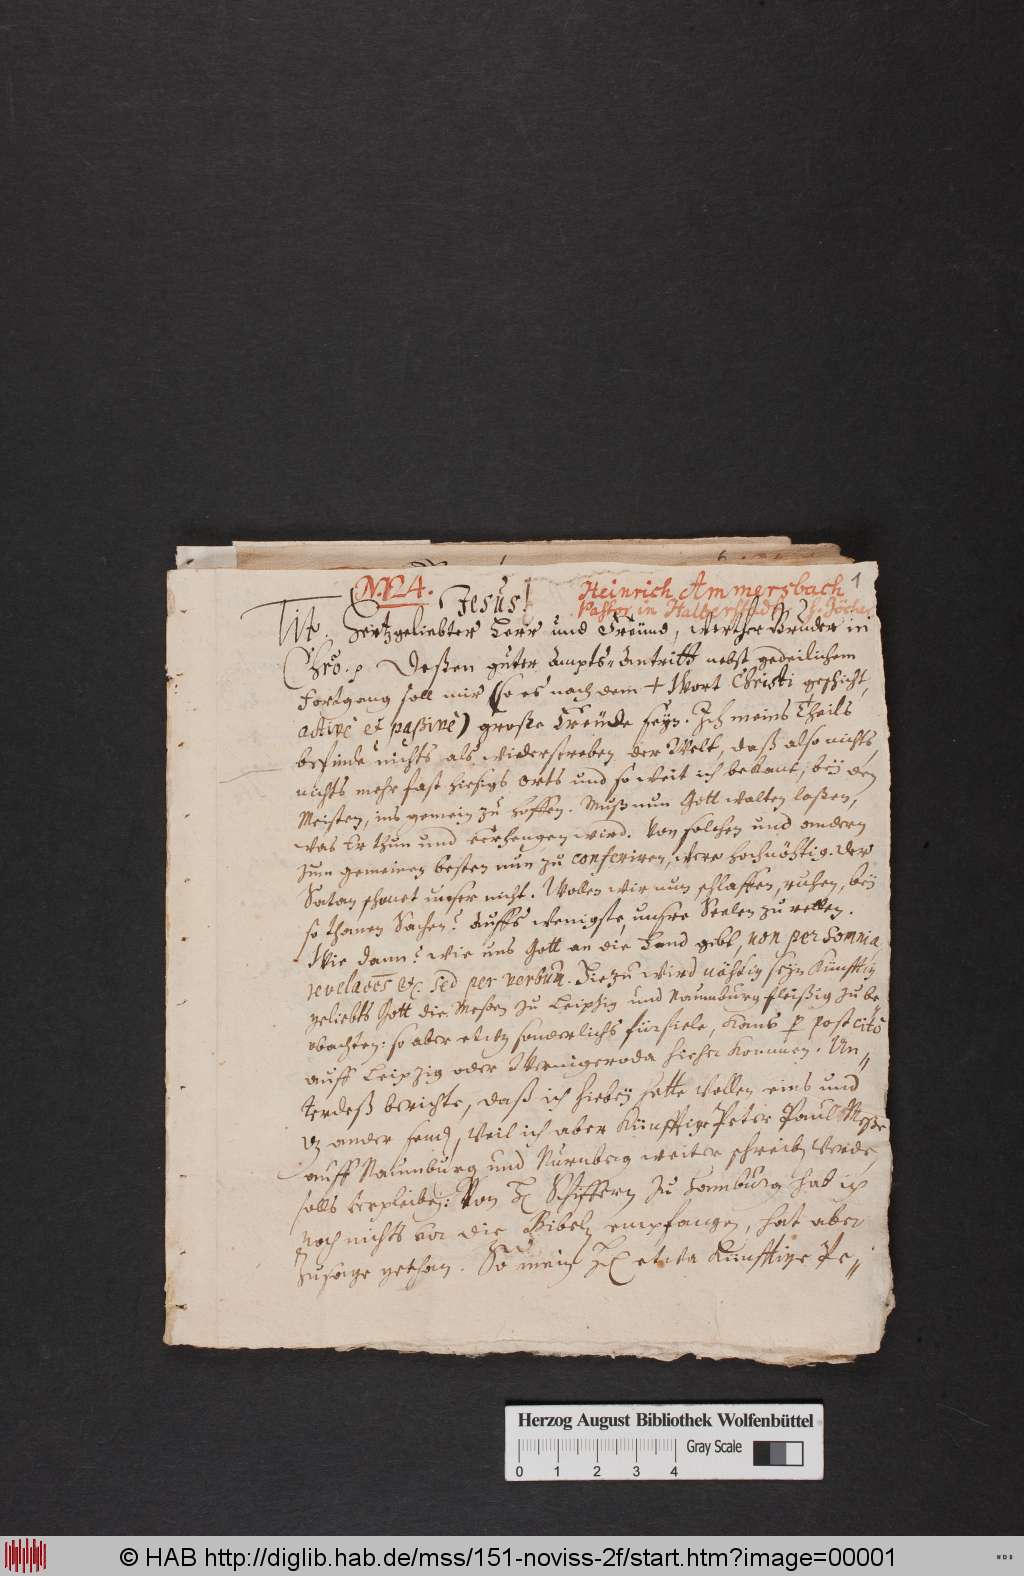 N. 4.
Jesus!
Heinrich Ammersbach 1
Pastor in Halberstadt. v. Jöcher
Tit. Hertzgeliebter Herr und Freund, werther Bruder in
Chro. p. Deßen guter Ampts-Antritt nebst gedeilichem
Fortgang soll mir (so es nach dem + Wort Christi geschicht,
activè et paßivè) große Freüde seyn. Ich meins Theils
befinde nichts als widerstreben der Welt, daß also nichts,
nichts mehr fast hiesigs Orts und so weit ich bekant, beÿ den
Meisten, ins gemein zu hoffen. Muß nun Gott walten laßen,
was Er thun und verhengen wird. Von solchen und andern
zum gemeinen besten nun zu conferiren, were hochnöhtig. Der
Satan schonet unser nicht. Wollen wir nun schlaffen, ruhen, beÿ
so thanen Sachen? Auffs wenigste, unsre Seelen zu retten.
Wie dann? wie uns Gott an die Hand gibt, non per somnia
revelaões &c. sed per verbum. Hiezu wird nöhtig seÿn künfftig
geliebts Gott die Meßen zu Leipzig und Naumburg fleißig zu be
obachten: so aber etwz sonderlichs fürfiele, kans p postcito
auff Leipzig oder Wernigeroda hieher kommen. Un//
terdeß berichte, daß ich hiebeÿ hette wollen eins und
dz ander send, weil ich aber künfftige Peter Paul Meße
auff Naumburg und Nürnberg weiter schreib werde,
solls verpleiben: Von H Schiffern zu Homburg hab ich
noch nichts vor die Bibeln empfangen, hat aber
Zusage gethan. So mein H etwa künfftige Pe//
Herzog August Bibliothek Wolfenbüttel
Gray Scale
0 1 2 3 4
© HAB http://diglib.hab.de/mss/151-noviss-2f/start.htm?image=00001